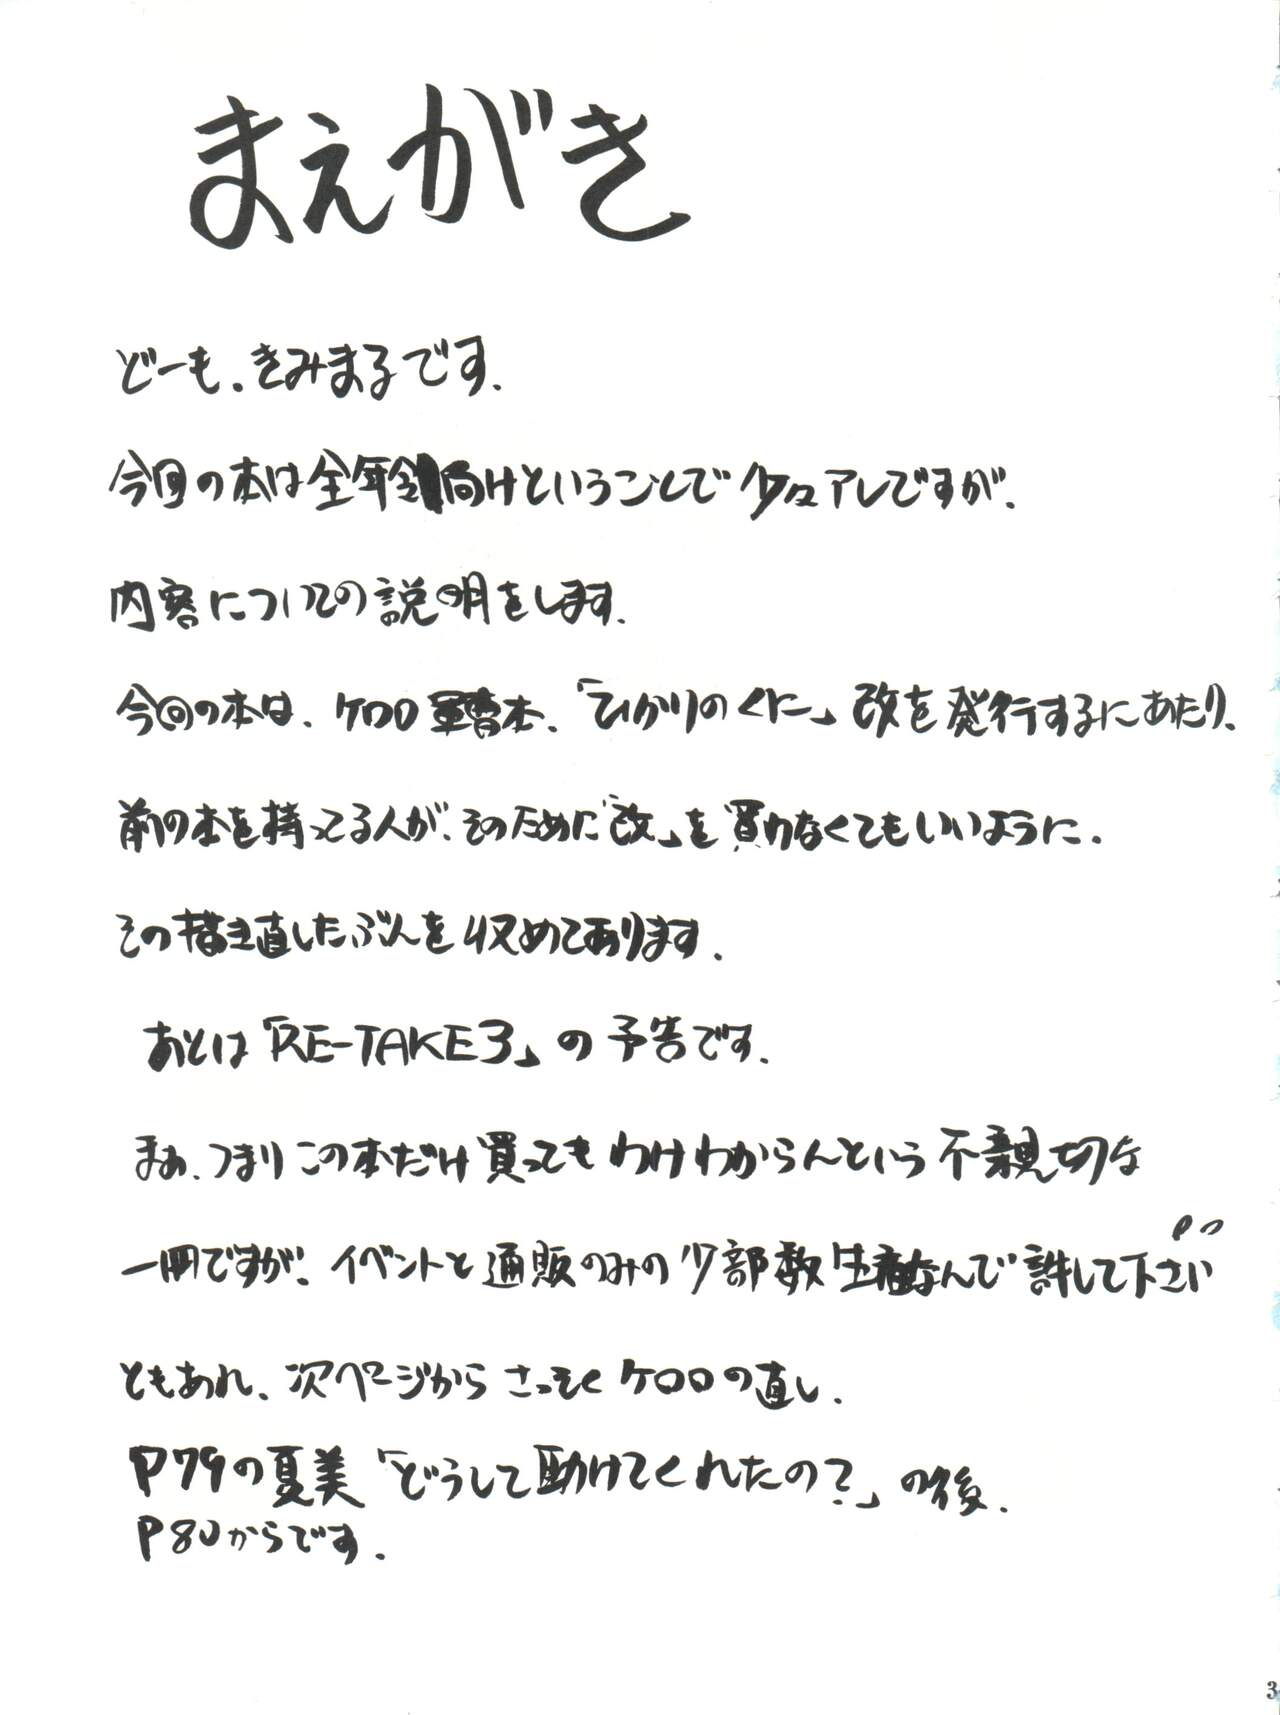 まえがき
どーも、きみまるです.
今回の本は全年令向けということで少々アレですが、
内容についての説明をします.
今回の本は、ケロロ軍曹本、「ひかりのくに」改を発行するにあたり、
前の本を持ってる人が、そのために「改」を買わなくてもいいように、
その描き直したぶんを収めてあります.
あとは「RE-TAKE3」の予告です.
まあ、つまりこの本だけ買ってもわけわからんという不親切な
一冊ですが、イベントと通販のみの少部数生産なんで許して下さい
ともあれ、次ページからさっそくケロロの直し.
P79の夏美「どうして助けてくれたの?」の後、
P80からです.
3